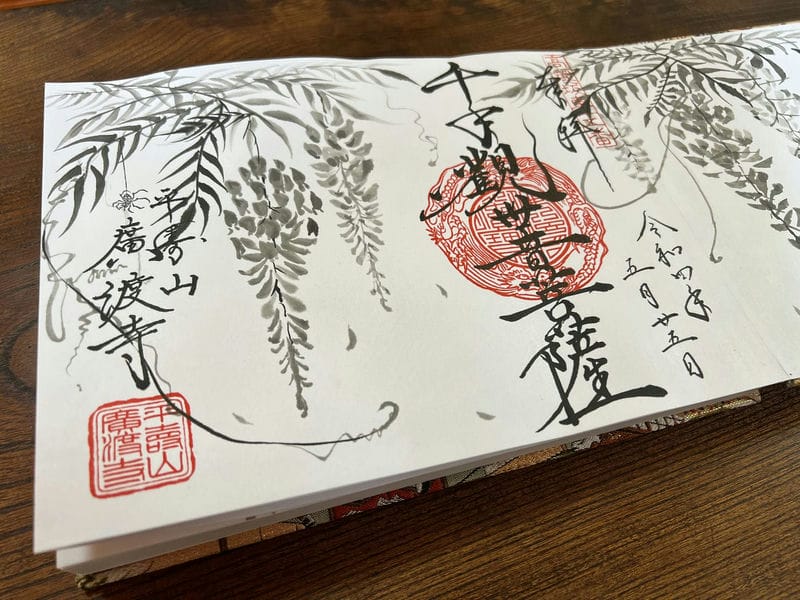 奉拝
令和四年
五月廿五日
千手觀世音菩薩
平寿山
廣渡寺
平壽山
廣渡寺